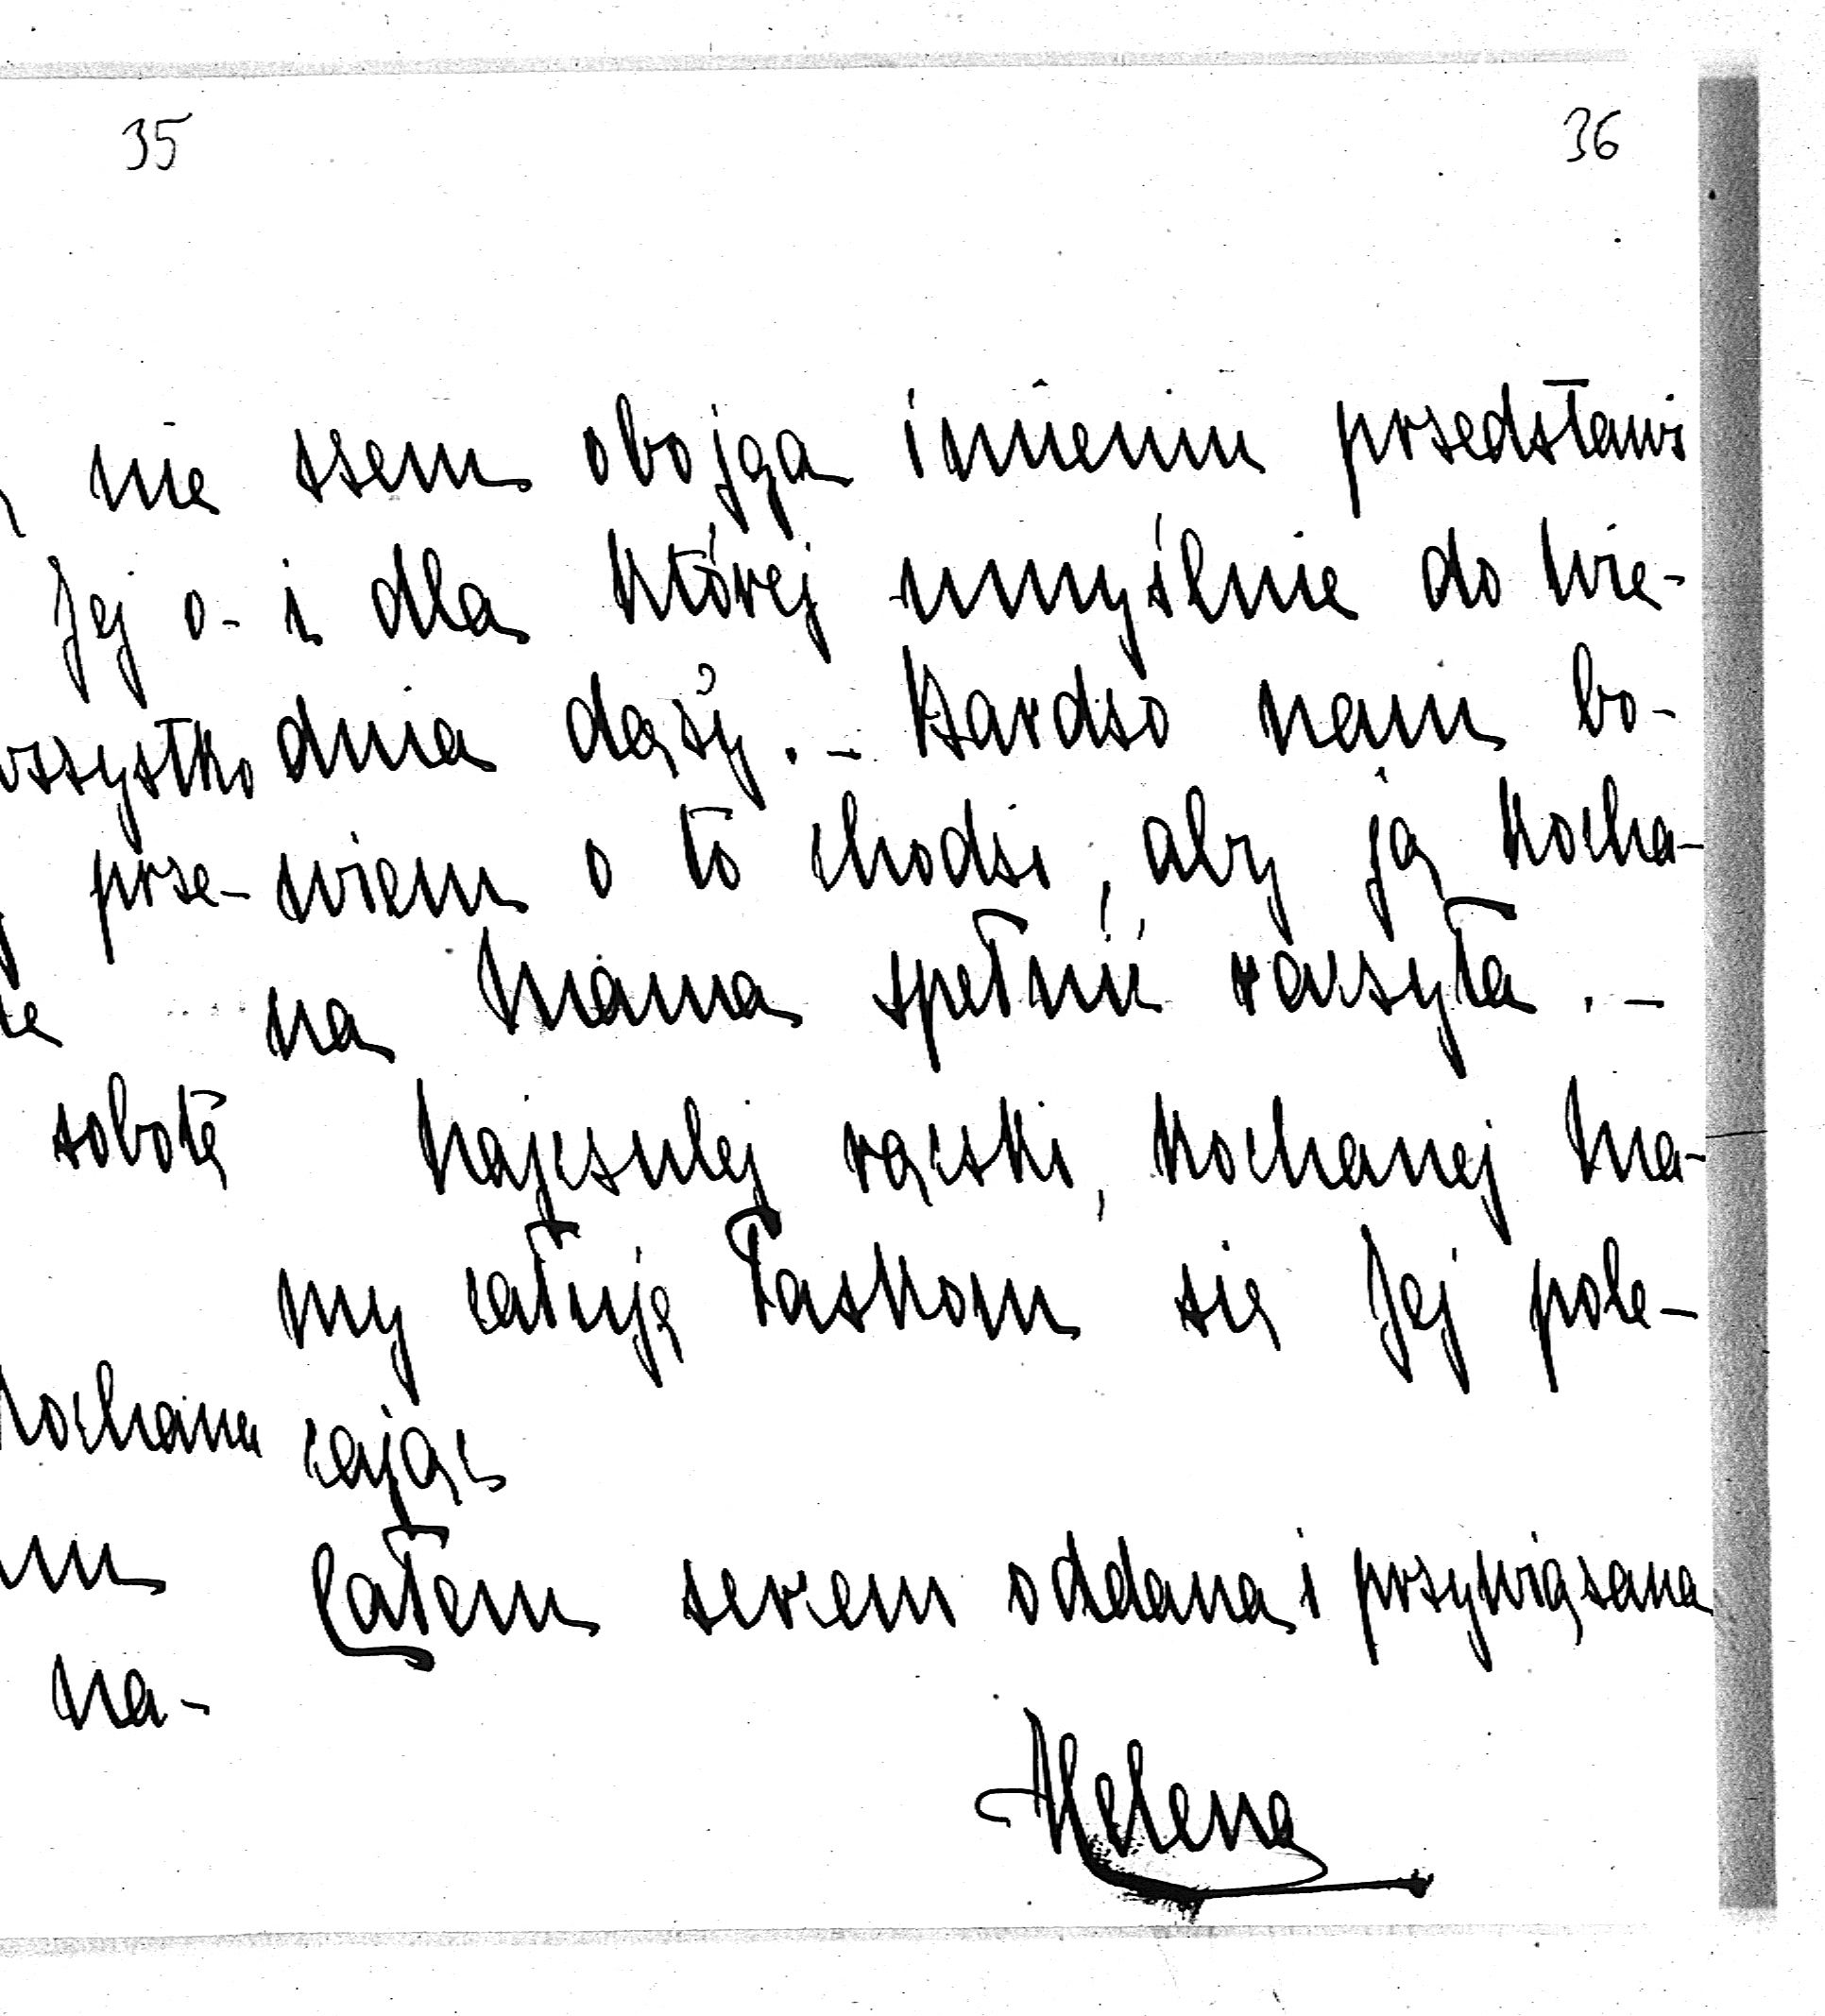 35
nie
Jej o-
wszystko
prze-
sobotę
Kochana
na-
36
szem obojga imieniu przedstawi
i dla której umyślnie do Wie-
dnia dąży. – Bardzo nam bo-
wiem o to chodzi, aby ją Kocha-
na Mama spełnić raczyła. –
Najczulej rączki, Kochanej Ma-
my całuję Łaskom się Jej pole-
cając
Całem sercem oddana i przywiązana
Helena